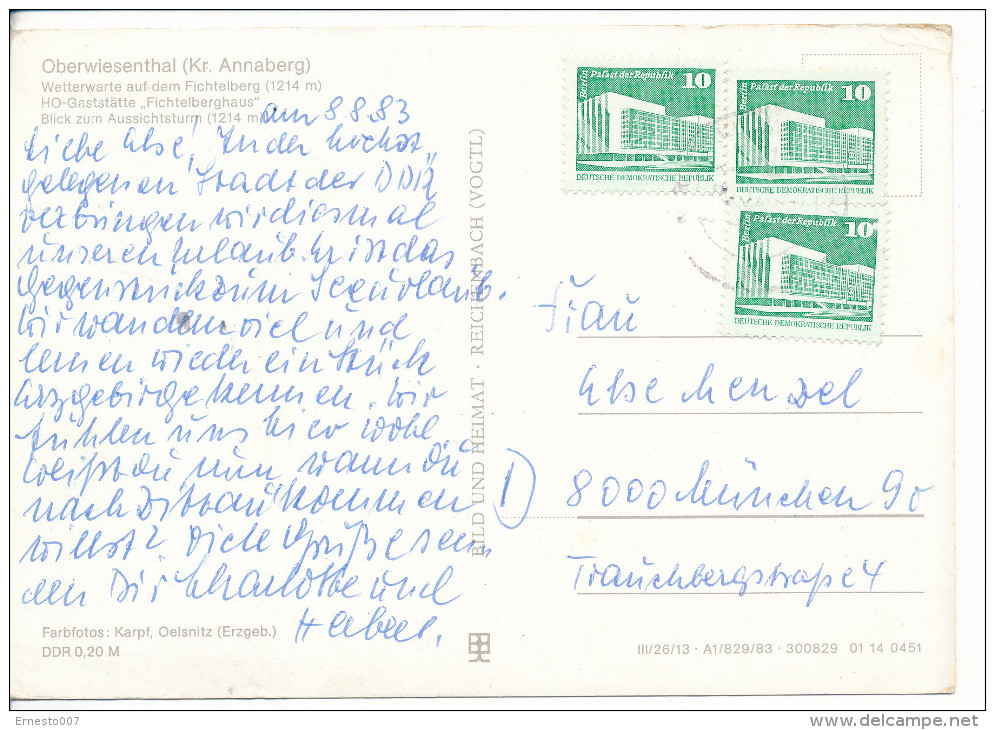 Oberwiesenthal (Kr. Annaberg)
Wetterwarte auf dem Fichtelberg (1214 m)
HO-Gaststätte „Fichtelberghaus"
Blick zum Aussichtsturm (1214 m)
am 8.8.83
Liebe Else! In der höchst
gelegenen Stadt der DDR
verbringen wir diesmal
unseren Urlaub. Er ist das
Gegenstück zum Seeurlaub.
Wir wandern viel und
lernen wieder ein Stück
Erzgebirge kennen. Wir
fühlen uns hier wohl.
Weißt du nun, wann du
nach Zittau kommen
willst? Viele Grüße sen
den Dir Charlotte und
Farbfotos: Karpf, Oelsnitz (Erzgeb.)
DDR 0,20 M
BILD UND HEIMAT · REICHENBACH (VOGTL)
Berlin Palast der Republik 10
DEUTSCHE DEMOKRATISCHE REPUBLIK
Berlin Palast der Republik 10
DEUTSCHE DEMOKRATISCHE REPUBLIK
Berlin Palast der Republik 10
DEUTSCHE DEMOKRATISCHE REPUBLIK
Frau
Else Menzel
D) 8000 München 90
Trauchbergstraße 4
III/26/13 · A1/829/83 · 300829 01 14 0451
Ernesto007
delcampe.net